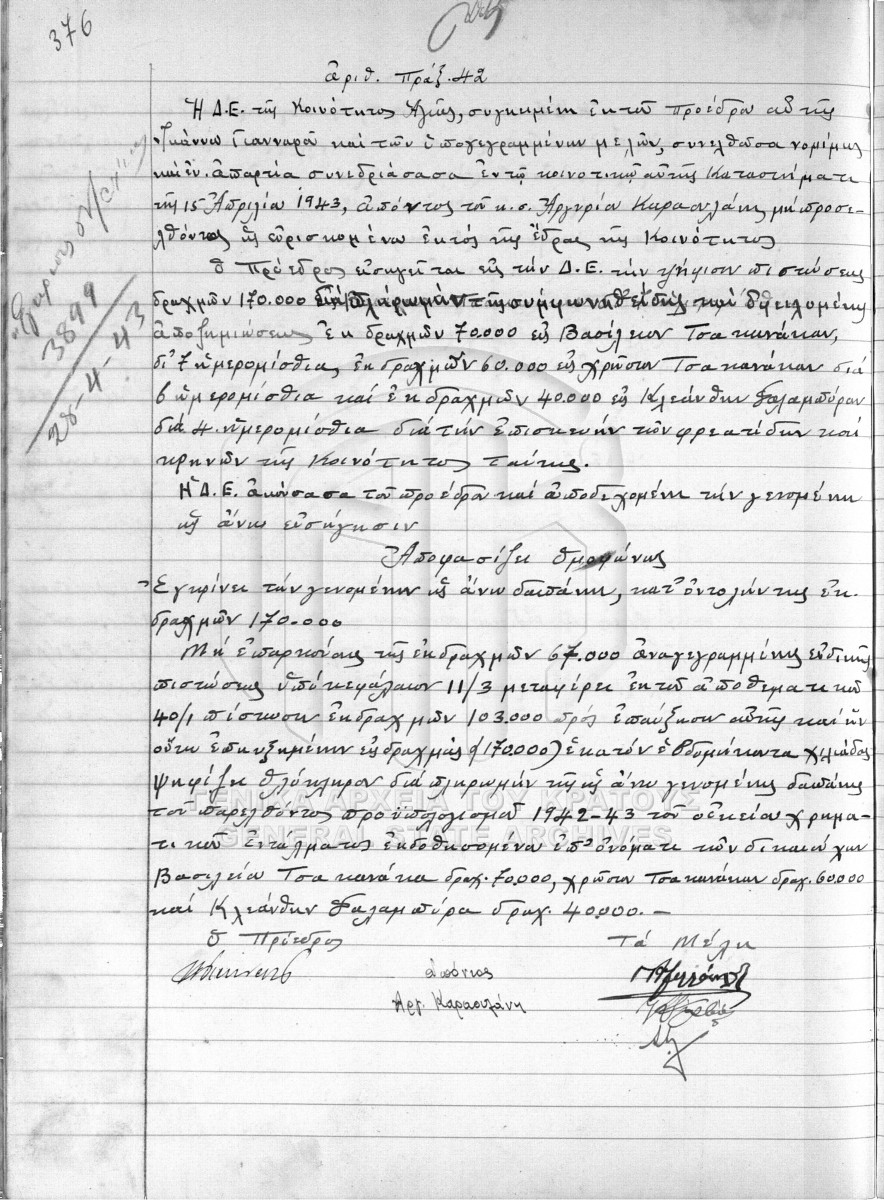 376
ἀριθ. πράξ. 42
Ἡ Δ.Ε. τῆς Κοινότητος Ἁγιᾶς, συγκειμένη ἐκ τοῦ Προέδρου αὐτῆς
Ἰωάννου Γιανναροῦ καὶ τῶν ὑπογεγραμμένων μελῶν, συνελθοῦσα νομίμως
καὶ ἐν ἀπαρτίᾳ συνεδριάσασα ἐν τῷ κοινοτικῷ αὐτῆς Καταστήματι
τῆς 15 Ἀπριλίου 1943, ἀπόντος τοῦ κ.σ. Ἀργυρίου Καραουλάνη, μὴ προσε-
λθόντος ὡς εὑρισκομένου ἐκτὸς τῆς ἕδρας τῆς Κοινότητος
ὁ Πρόεδρος εἰσηγεῖται εἰς τὴν Δ.Ε. τὴν ψήφισιν πιστώσεως
δραχμῶν 170.000 διὰ πληρωμὴν τῆς συμφωνηθείσης καὶ ὀφειλομένης
ἀποζημιώσεως ἐκ δραχμῶν 70.000 εἰς Βασίλειον Τσακανάκαν,
δι' 7 ἡμερομίσθια, ἐκ δραχμῶν 60.000 εἰς Χρῆστον Τσακανάκαν διὰ
6 ἡμερομίσθια καὶ ἐκ δραχμῶν 40.000 εἰς Κλεάνθην Γαλαμπόραν
διὰ 4 ἡμερομίσθια διὰ τὴν ἐπισκευὴν τῶν φρεατίδων καὶ
κρηνῶν τῆς Κοινότητος ταύτης.
Ἡ Δ.Ε. ἀκούσασα τοῦ προέδρου καὶ ἀποδεχομένη τὴν γενομένην
ὡς ἄνω εἰσήγησιν
Ἀποφασίζει ὁμοφώνως
Ἐγκρίνει τὴν γενομένην ὡς ἄνω δαπάνην, κατ' ἐντολήν της ἐκ
δραχμῶν 170.000
Μὴ ἐπαρκούσης τῆς ἐκ δραχμῶν 67.000 ἀναγεγραμμένης εἰδικῆς
πιστώσεως ὑπὸ κεφάλαιον 11/3 μεταφέρει ἐκ τοῦ ἀποθεματικοῦ
40/1 πίστωσιν ἐκ δραχμῶν 103.000 πρὸς ἐπαύξησιν αὐτῆς καὶ ἣν
οὕτω ἐπηυξημένην εἰς δραχμὰς (170.000) ἑκατὸν ἑβδομήκοντα χιλιάδας
ψηφίζει ὁλόκληρον διὰ πληρωμὴν τῆς ὡς ἄνω γενομένης δαπάνης
τοῦ παρελθόντος προϋπολογισμοῦ 1942-43 τοῦ οἰκείου χρημα-
τικοῦ ἐντάλματος ἐκδοθησομένου ἐπ' ὀνόματι τῶν δικαιούχων
Βασιλείου Τσακανάκα δραχ. 70.000, Χρῆστον Τσακανάκαν δραχ. 60.000
καὶ Κλεάνθην Γαλαμπόρα δραχ. 40.000. —
ὁ Πρόεδρος Τὰ Μέλη
Ἀπόντος
Ἀργ. Καραουλάνη
3899
28-4-43
ΓΕΝΙΚΑ ΑΡΧΕΙΑ ΤΟΥ ΚΡΑΤΟΥΣ
GENERAL STATE ARCHIVES